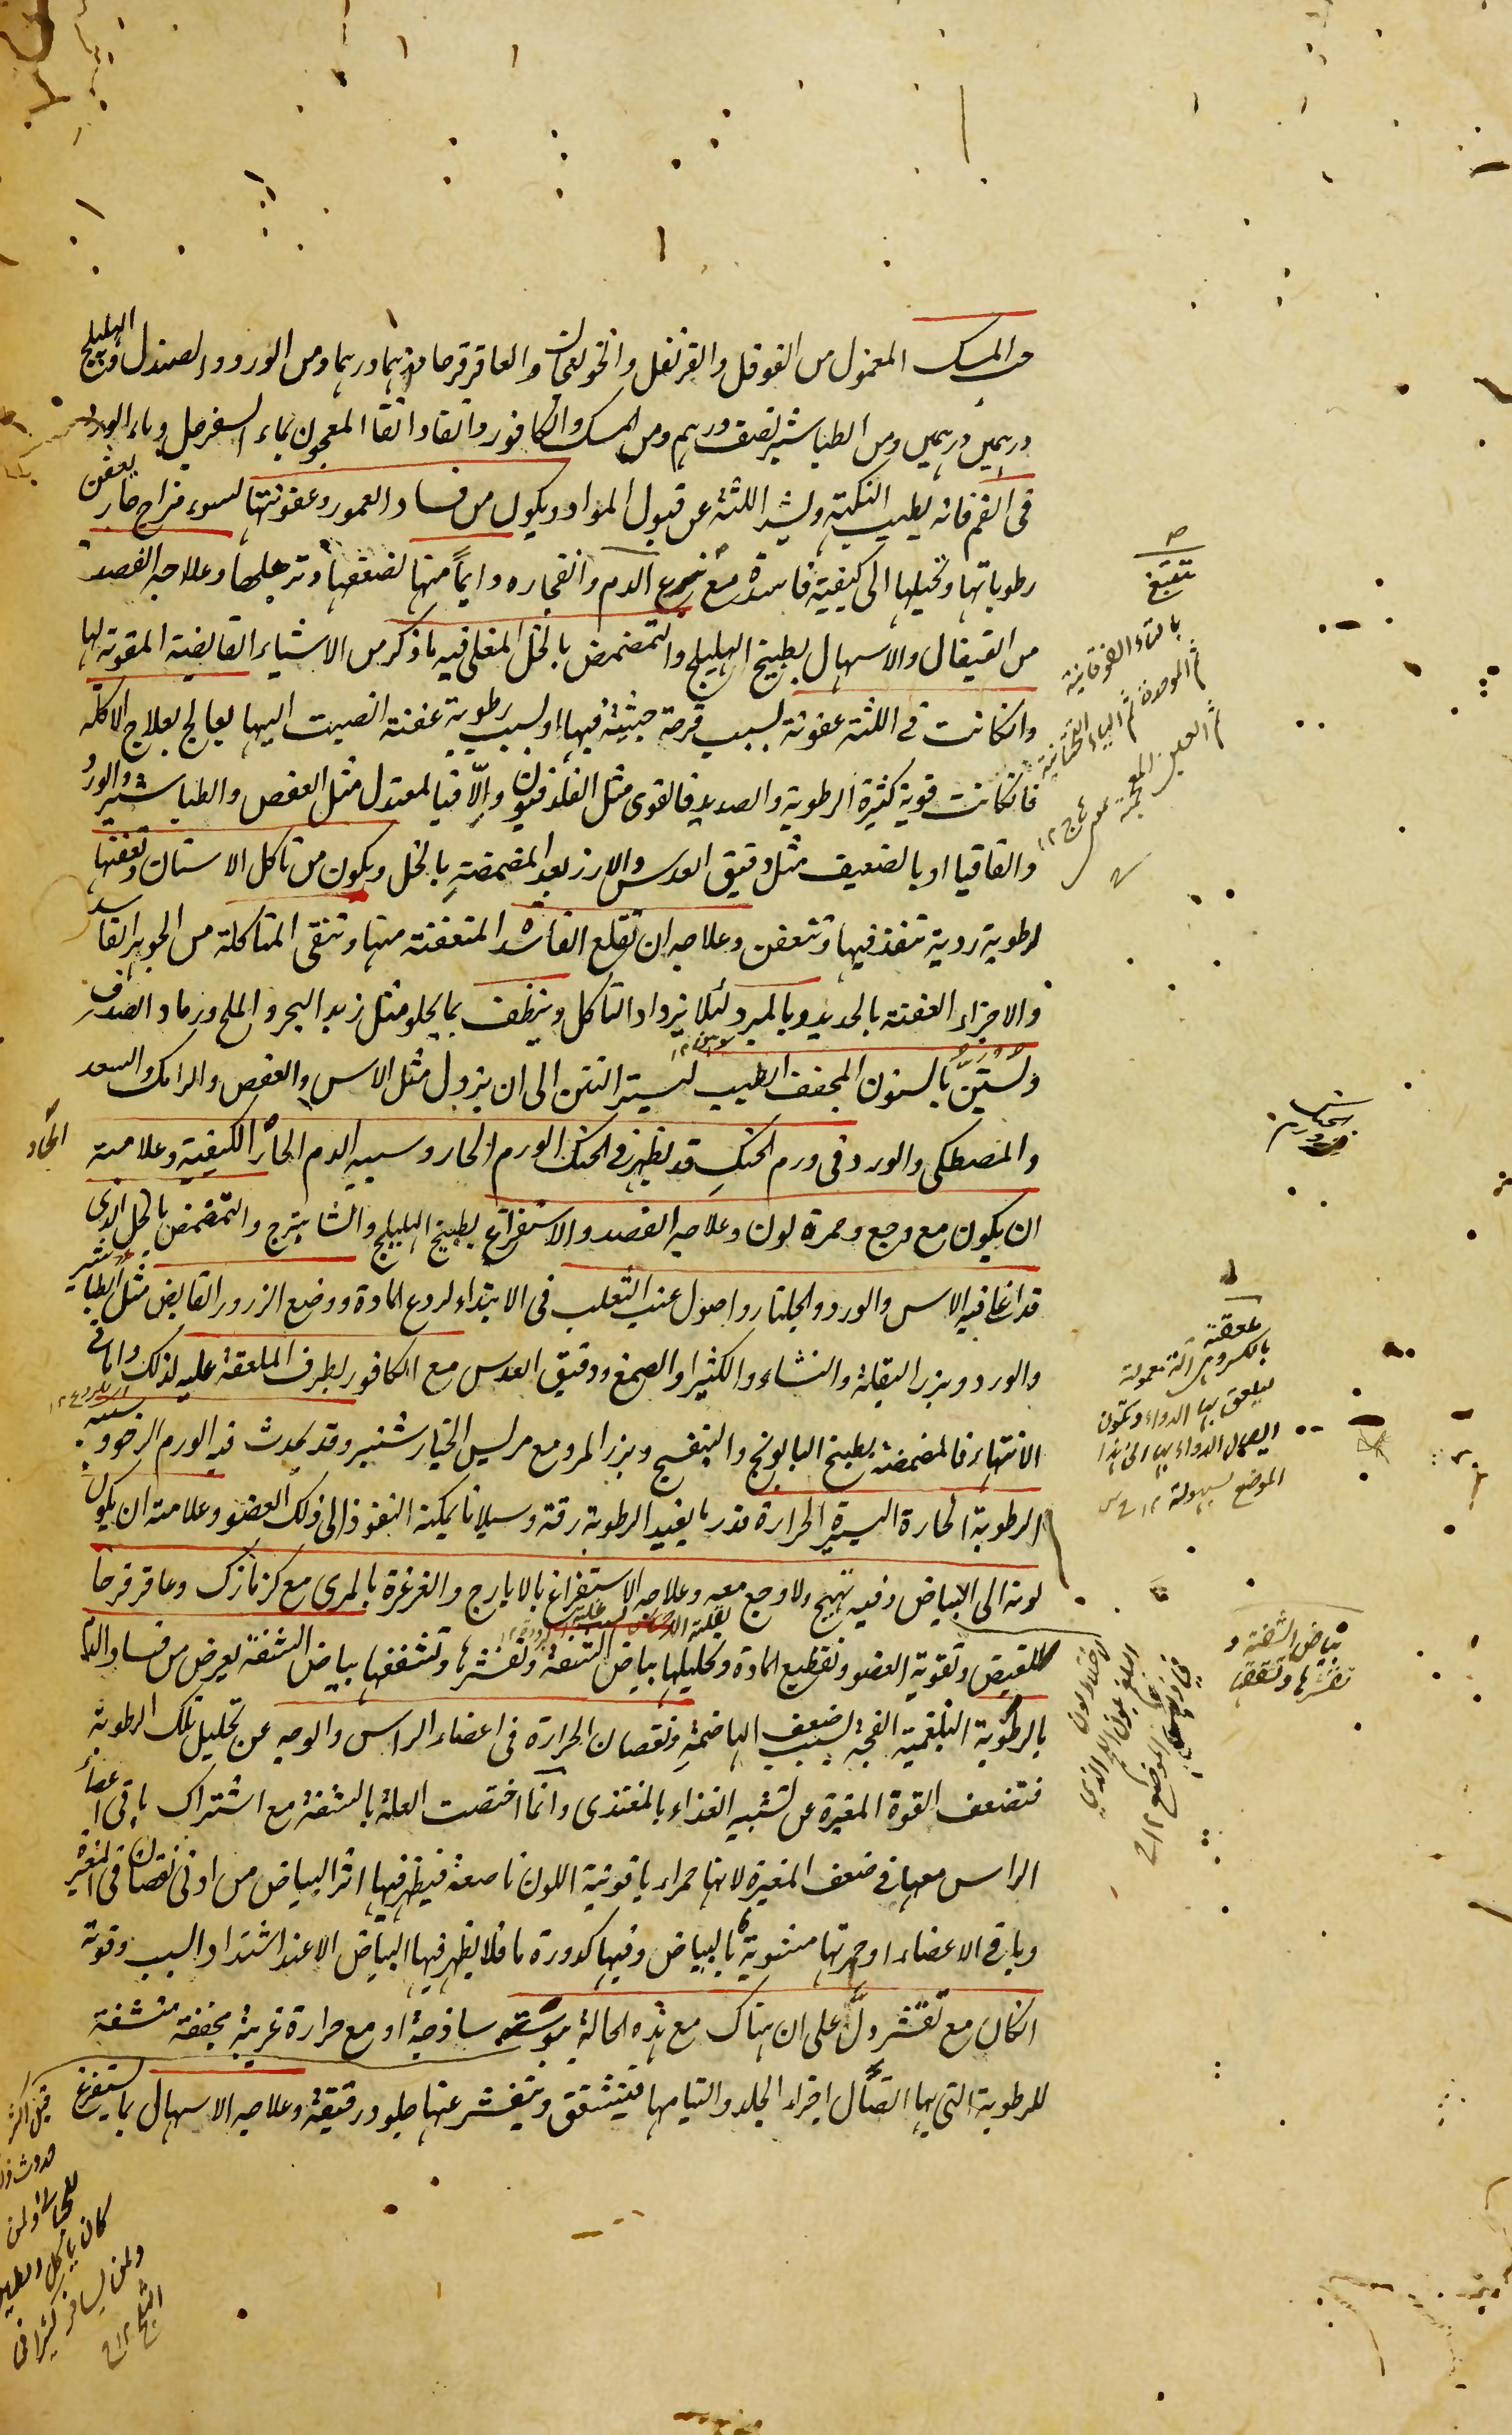 حب المسك المعمول من الفوفل والقرنفل والخولنجان والعاقرقرحا درهما درهما ومن الورد والصندل والهليلج
درهمين درهمين ومن الطباشير نصف درهم ومن المسك والكافور دانقا دانقا المعجون بماء السفرجل وماء الورد
فى الفم فانه يطيب النكهة ويشد اللثة عن قبول المواد ويكون من فساد العمور وعفونتها لسوء مزاج حار يعفن
رطوباتها ويحيلها الى كيفية فاسدة مع تبيغ الدم وانفجاره دايماً منها لضعفها وترهلها وعلاجه الفصد
من القيفال والاسهال بطبيخ الهليلج والتمضمض بالخل المغلى فيه ما ذكر من الاشياء القابضة المقوية لها
وانكانت فى اللثة عفونة لسبب قرحة خبيثة فيها او لسبب رطوبة عفنة انصبت اليها يعالج بعلاج الاكلة
فانكانت قوية كثيرة الرطوبة والصديد فالقوى مثل الفلدفيون والا فبالمعتدل مثل العفص والطباشير والورد
والقاقيا او بالضعيف مثل دقيق العدس والارز بعد المضمضة بالخل ويكون من تاكل الاسنان وتعفنها
لرطوبة ردية تنفذ فيها وتتعفن وعلاجه ان تقلع الفاسد المتعفنة منها وتنقى المتاكلة من الجوهر الفاسد
والاجزاء العفنة بالحديد وبالمبرد لئلا يزداد التاكل وينظف بما يجلو مثل زبد البحر والملح ورماد الصدف
ويستن بالسنون المجفف الطيب ليستر النتن الى ان يزول مثل الاس والعفص والرامك والسعد
والمصطكى والورد فى ورم الحنك قد يظهر فى الحنك الورم الحار وسببه الدم الحار الكيفية وعلامته
ان يكون مع وجع وحمرة لون وعلاجه الفصد والاستفراغ بطبيخ الهليلج والشاهترج والتمضمض بالخل الذى
قد اغلى فيه الاس والورد والجلنار واصول عنب الثعلب فى الابتداء لردع المادة ووضع الذرور القابض مثل الطباشير
والورد وبزر البقلة والنشاء والكثيرا والصمغ ودقيق العدس مع الكافور بطرف الملعقة عليه لذلك واما فى
الانتهاء فالمضمضة بطبيخ البابونج والبنفسج وبزر المرو مع مرس الخيارشنبر وقد يحدث فيه الورم الرخو وسببه
الرطوبة الحارة اليسيرة الحرارة قدر ما يفيد الرطوبة رقة وسيلانا يمكنه النفوذ الى ذلك العضو وعلامته ان يكون
لونه الى البياض وفيه تهيج ولا وجع معه وعلاجه الاستفراغ بالايارج والغرغرة بالمرى مع كزمازك وعاقرقرحا
للقبض وتقوية العضو وتقطيع المادة وتحليلها بياض الشفة وتقشرها وتشققها بياض الشفة يعرض من فساد الدم
بالرطوبة البلغمية الفجة لسبب ضعف الهاضمة ونقصان الحرارة فى اعضاء الراس والوجه عن تحليل تلك الرطوبة
فتضعف القوة المغيرة عن تشبيه الغذاء بالمغتذى وانما اختصت العلة بالشفة مع اشتراك باقى اعضاء
الراس معها فى ضعف المغيرة لانها حمراء ياقوتية اللون ناصعة فيظهر فيها اثر البياض من ادنى نقصان فى المغيرة
وباقى الاعضاء او حمرتها مشوبة بالبياض وفيها كدورة ما فلا يظهر فيها البياض الا عند اشتداد السبب وقوته
انكان مع تقشر دل على ان هناك مع هذه الحالة يبوسة ساذجة او مع حرارة غريبة مجففة منشفة
للرطوبة التى بها اتصال اجزاء الجلد والتيامها فيتشقق ويتقشر عنها جلود رقيقة وعلاجه الاسهال بما يستفرغ
تبيغ
بالتاء الفوقانية
ثم الموحدة ثم الياء التحتانية
ثم الغين المعجمة
بالكسر هى آلة معمولة
ليلعق بها الدواء وتكون
ايصال الدواء بها الى هذا
الموضع بسهولة ١٢
بياض الشفة و
تقشرها وتشققها
الحاد